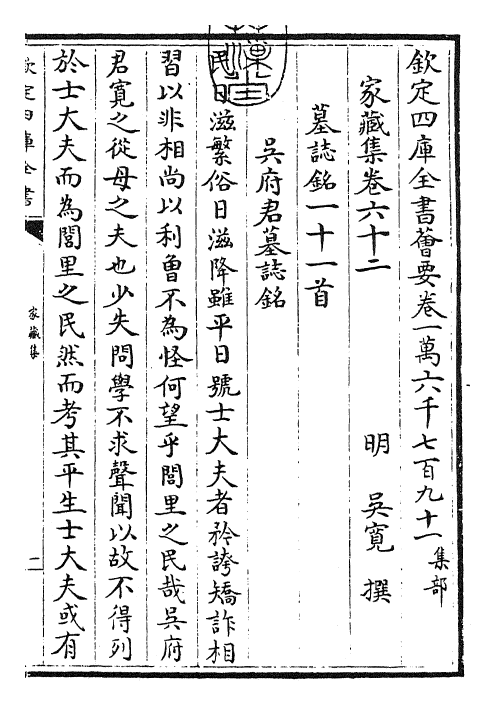 欽定四庫全書薈要卷一萬六千七百九十一集部
家藏集卷六十二
明 吳寬 撰
墓誌銘一十一首
吳府君墓誌銘
民日滋繁俗日滋降雖平日號士大夫者矜誇矯詐相
習以非相尚以利曾不為怪何望乎閭里之民哉吳府
君寬之從母之夫也少失問學不求聲聞以故不得列
於士大夫而為閭里之民然而考其平生士大夫或有
欽定四庫全書
家藏集